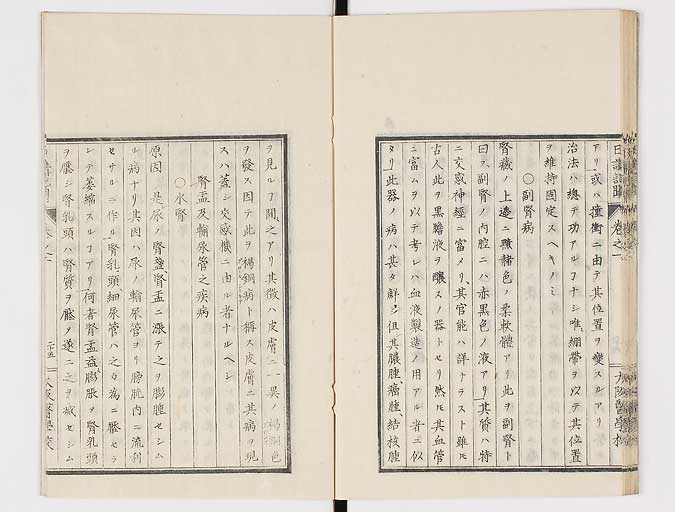 日講記聞 卷之一 大阪醫學校
アリ或ハ撞衝ニ由テ其位置ヲ變スルアリ
治法ハ總テ功アルヿナシ唯繃帶ヲ以テ其位置
ヲ維持固定スヘキノミ
○副腎病
腎臟ノ上邊ニ黃赭色ノ柔軟體アリ此ヲ副腎ト
曰フ副腎ノ内腔ニハ赤黑色ノ液アリ其質ハ特
ニ交感神經ニ富メリ其官能ハ詳ナラスト雖モ
古人此ヲ黑膽液ヲ釀スノ器トセリ然モ其血管
ニ富ムヲ以テ考レハ血液製造ノ用アル者ニ似
タリ此器ノ病ハ甚タ鮮シ但其膿腫、癌腫、結核腫
ヲ見ルヿ間之アリ其徵ハ皮膚ニ一異ノ褐銅色
ヲ發ス因テ此ヲ褐銅病ト稱ス皮膚ニ其病ヲ現
スハ蓋シ交感機ニ由ル者ナルヘシ
腎盂及輸尿管之疾病
○水腎
原因 是尿ノ腎盞、腎盂ニ漲テ之ヲ膨脹セシム
ル病ナリ其因ハ尿ノ輸尿管ヨリ膀胱内ニ流利
セサルニ作ル腎乳頭細尿管ハ之カ為ニ壓セラ
レテ萎縮スルヿアリ何者腎盂益膨脹メ腎乳頭
ヲ壓シ腎乳頭ハ腎質ヲ壓メ遂ニ之ヲ減セシム
二十五 大阪醫學校